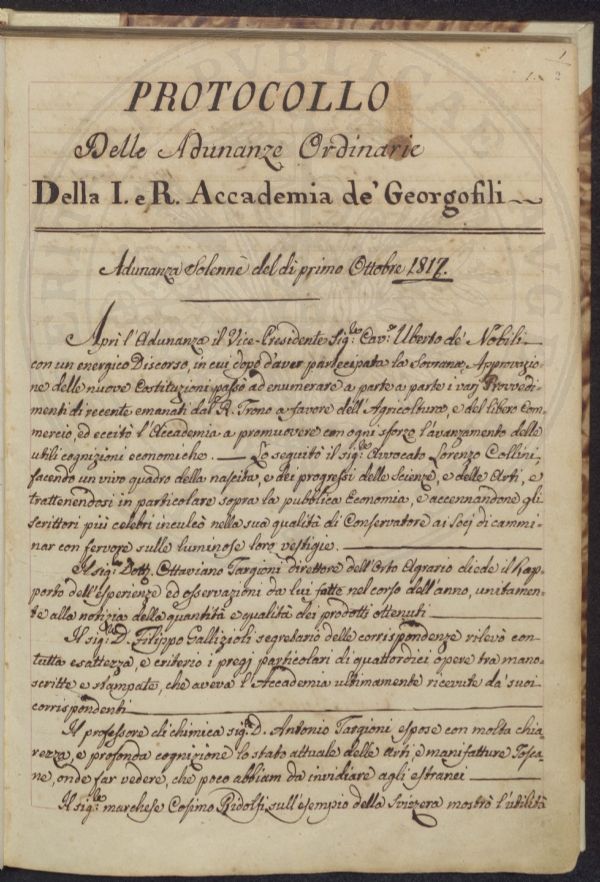 1
1. 2
PROTOCOLLO
Delle Adunanze Ordinarie
Della I. e R. Accademia de' Georgofili
Adunanza Solenne del dì primo Ottobre 1817.
Aprì l'Adunanza il Vice-Presidente Sig.re Cav.re Uberto de' Nobili
con un energico Discorso, in cui dopo d'aver partecipata la Sovrana Approvazio=
ne delle nuove Costituzioni passò ad enumerare a parte a parte i varj Provvedi=
menti di recente emanati dal R. Trono a favore dell'Agricoltura, e del libero Com=
mercio, ed eccitò l'Accademia a promuovere con ogni sforzo l'avanzamento delle
utili cognizioni economiche. Lo seguitò il sig.re Avvocato Lorenzo Collini,
facendo un vivo quadro della nascita, e dei progressi delle Scienze, e delle Arti, e
trattenendosi in particolare sopra la pubblica Economia, e accennandone gli
scrittori più celebri inculcò nella sua qualità di Conservatore ai Socj di cammi=
nar con fervore sulle luminose loro vestigie.
Il sig.re Dott. Ottaviano Targioni direttore dell'Orto Agrario diede il Rap=
porto dell'esperienze ed osservazioni da lui fatte nel corso dell'anno, unitamen=
te alla notizia della quantità e qualità dei prodotti ottenuti
Il sig.re D. Filippo Gallizioli segretario delle corrispondenze rilevò con
tutta esattezza, e criterio i pregj particolari di quattordici opere tra mano=
scritte e stampate, che aveva l'Accademia ultimamente ricevute da' suoi
corrispondenti
Il professore di chimica sig.re D. Antonio Targioni espose con molta chia=
rezza, e profonda cognizione lo stato attuale delle arti e manifatture Tosca=
ne, onde far vedere, che poco abbiam da invidiare agli estranei
Il sig.re marchese Cosimo Ridolfi sull'esempio della Svizzera mostrò l'utilità